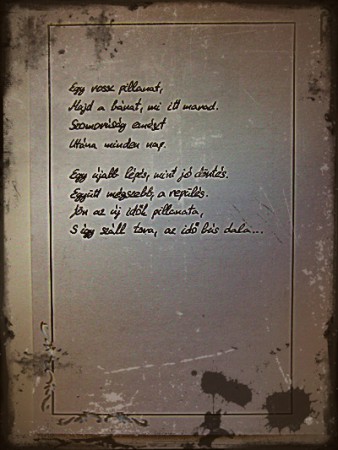 Egy rossz pillanat,
Majd a bánat, mi itt marad.
Szomorúság emészt
Utána minden nap.
Egy újabb lépés, mint jó döntés.
Együtt mégszebb, a repülés.
Jön az új idők pillanata,
S így száll tova, az idő bús dala...